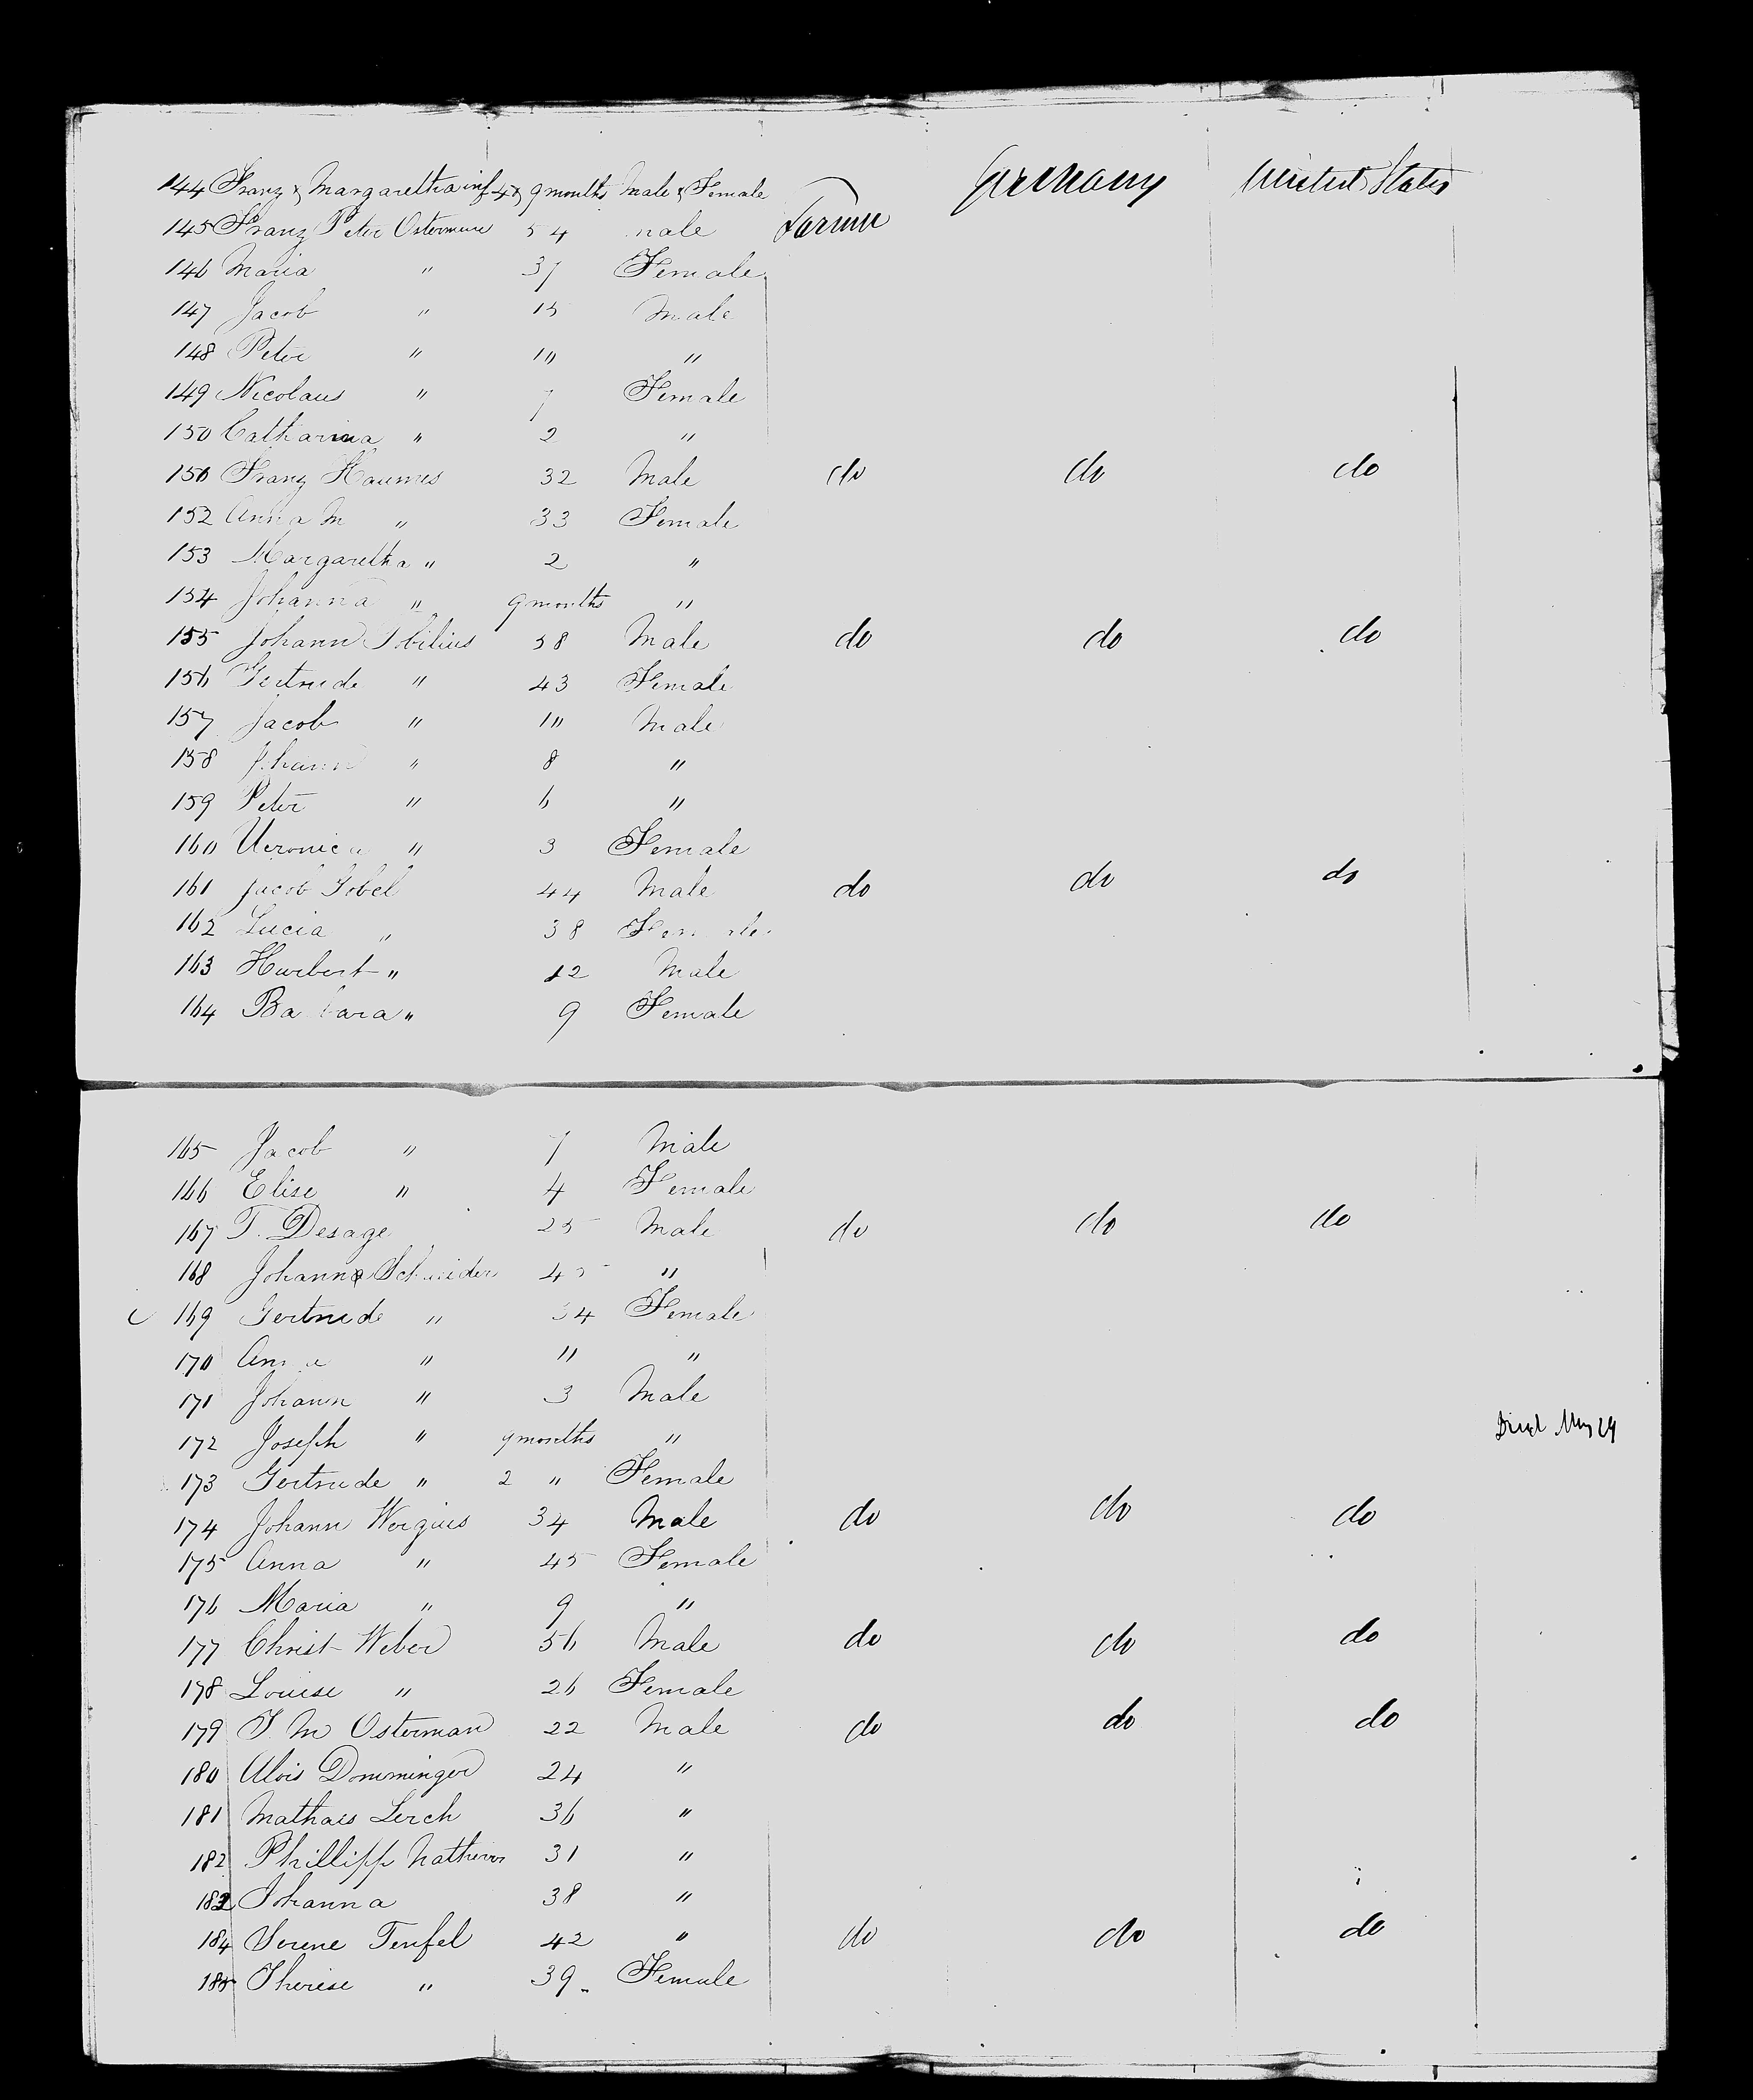 144 Franz & Margaretha inf 4 & 9 months Male & Female Germany United States
145 Franz Peter 54 male Farmer
146 Maria " 37 Female
147 Jacob " 15 Male
148 Peter " 10 "
149 Nicolaus " 7 Female
150 Catharina " 2 "
150 Franz Haumes 32 Male do do do
152 Anna M " 33 Female
153 Margaretha " 2 "
154 Johanna " 9 months "
155 Johann 38 Male do do do
156 Gertrude " 43 Female
157 Jacob " 10 Male
158 Johann " 8 "
159 Peter " 6 "
160 Veronica " 3 Female
161 Jacob Gobel 44 Male do do do
162 Lucia " 38 Female
163 Hurbert " 12 Male
164 Barbara " 9 Female
165 Jacob " 7 Male
166 Elise " 4 Female
167 T. Desage 25 Male do do do
168 Johann Schneider 45 "
169 Gertrude " 34 Female
170 Anna " 11 "
171 Johann " 3 Male
172 Joseph " 9 months " Died May 29
173 Gertrude " 2 " Female
174 Johann Wergius 34 Male do do do
175 Anna " 45 Female
176 Maria " 9 "
177 Christ Weber 56 Male do do do
178 Louise " 26 Female
179 J. M Osterman 22 Male do do do
180 Alois Domminger 24 "
181 Mathais Lerch 36 "
182 Phillipp 31 "
183 Johanna 38 "
184 Serene Teufel 42 " do do do
185 Therese " 39 Female